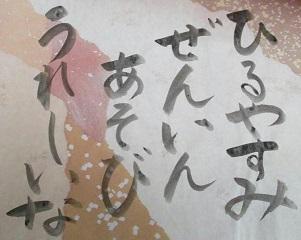 ひるやすみ
ぜんいん
あそび
うれしいな